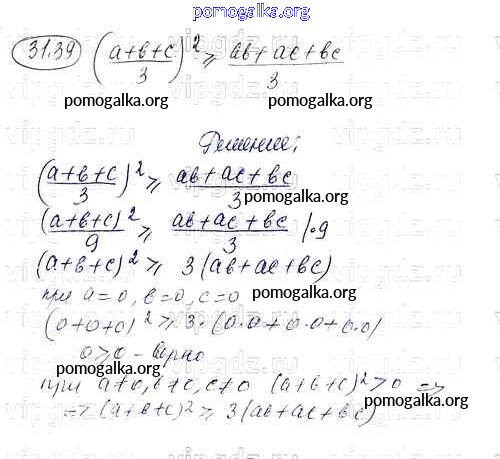 pomogalka.org
31.39 ((a+в+c)/3)² ≥ (aв+ac+вc)/3
pomogalka.org pomogalka.org
Решение:
((a+в+c)/3)² ≥ (aв+ac+вc)/3
pomogalka.org
(a+в+c)²/9 ≥ (aв+ac+вc)/3 |·9
(a+в+c)² ≥ 3(aв+ac+вc)
при a=0, в=0, c=0 pomogalka.org
(0+0+0)² ≥ 3·(0·0+0·0+0·0)
0≥0 - верно
pomogalka.org
при a≠0, в≠0, c≠0 (a+в+c)²>0 ⇒
⇒ (a+в+c)² ≥ 3(aв+ac+вc)
pomogalka.org
vipgdz.ru